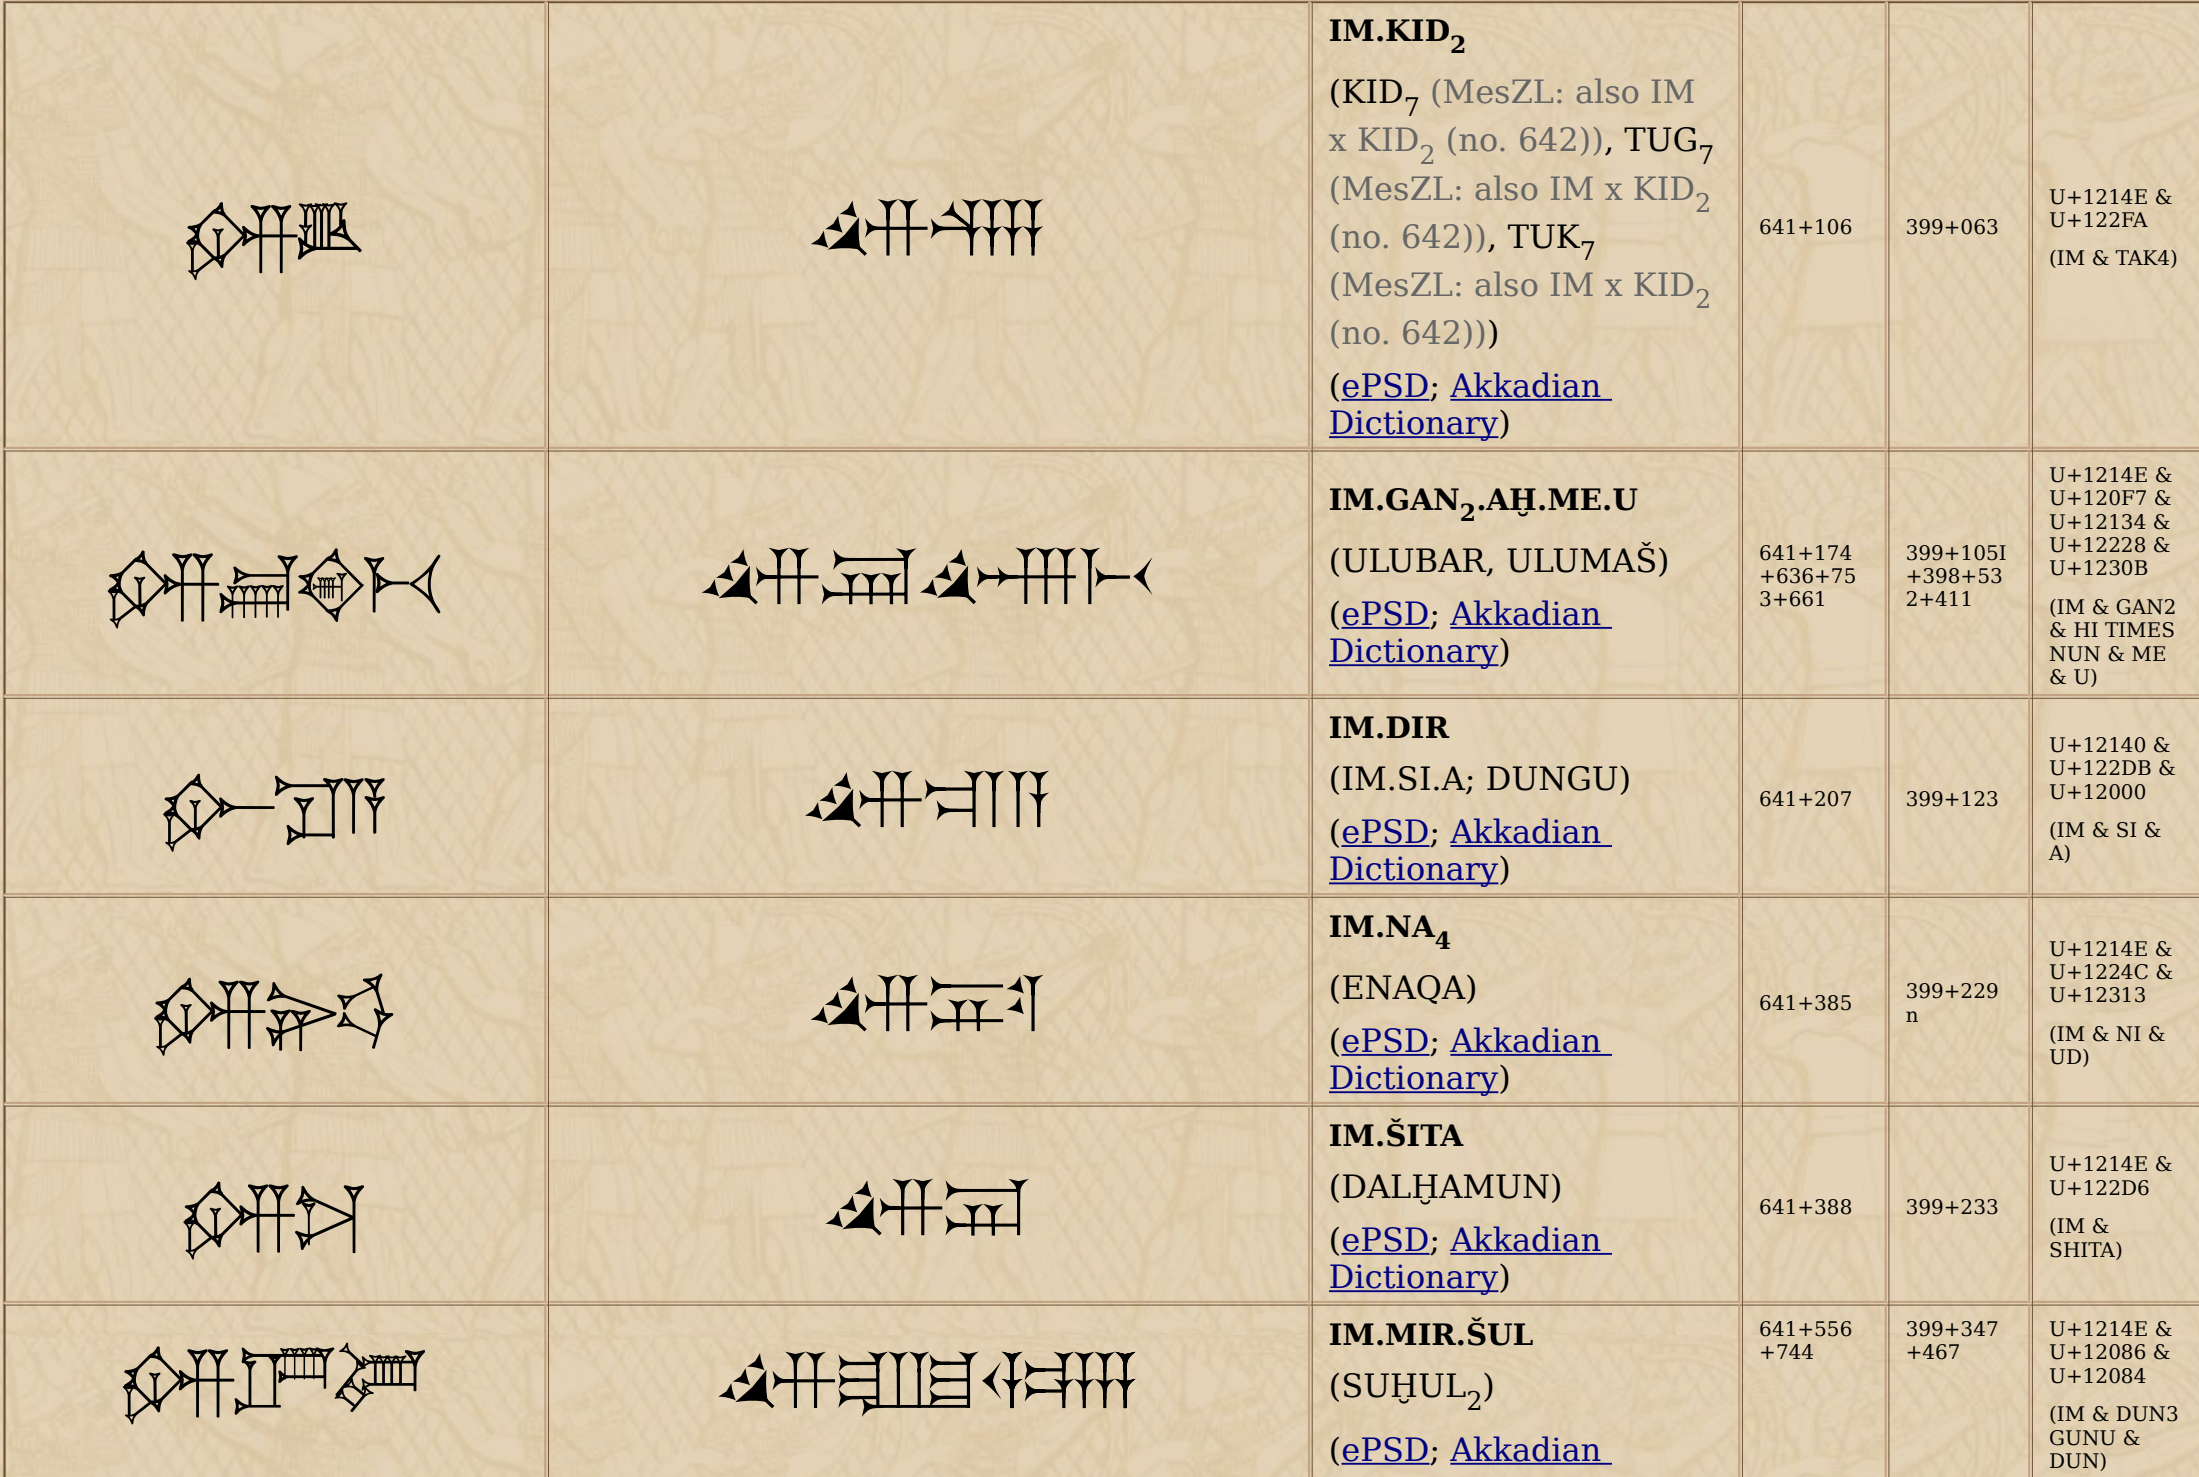 𒅎𒋺
𒅎𒋺
IM.KID₂
(KID₇ (MesZL: also IM
x KID₂ (no. 642)), TUG₇
(MesZL: also IM x KID₂
(no. 642)), TUK₇
(MesZL: also IM x KID₂
(no. 642)))
(ePSD; Akkadian
Dictionary)
641+106
399+063
U+1214E &
U+122FA
(IM & TAK4)
𒅎𒃷𒄴𒈨𒌋
𒅎𒃷𒄴𒈨𒌋
IM.GAN₂.AḪ.ME.U
(ULUBAR, ULUMAŠ)
(ePSD; Akkadian
Dictionary)
641+174
+636+75
3+661
399+105I
+398+53
2+411
U+1214E &
U+120F7 &
U+12134 &
U+12228 &
U+1230B
(IM & GAN2
& HI TIMES
NUN & ME
& U)
𒅎𒋛𒀀
𒅎𒋛𒀀
IM.DIR
(IM.SI.A; DUNGU)
(ePSD; Akkadian
Dictionary)
641+207
399+123
U+12140 &
U+122DB &
U+12000
(IM & SI &
A)
𒅎𒉌𒌓
𒅎𒉌𒌓
IM.NA₄
(ENAQA)
(ePSD; Akkadian
Dictionary)
641+385
399+229
n
U+1214E &
U+1224C &
U+12313
(IM & NI &
UD)
𒅎𒋖
𒅎𒋖
IM.ŠITA
(DALḪAMUN)
(ePSD; Akkadian
Dictionary)
641+388
399+233
U+1214E &
U+122D6
(IM &
SHITA)
𒅎𒂆𒂄
𒅎𒂆𒂄
IM.MIR.ŠUL
(SUḪUL₂)
(ePSD; Akkadian
641+556
+744
399+347
+467
U+1214E &
U+12086 &
U+12084
(IM & DUN3
GUNU &
DUN)